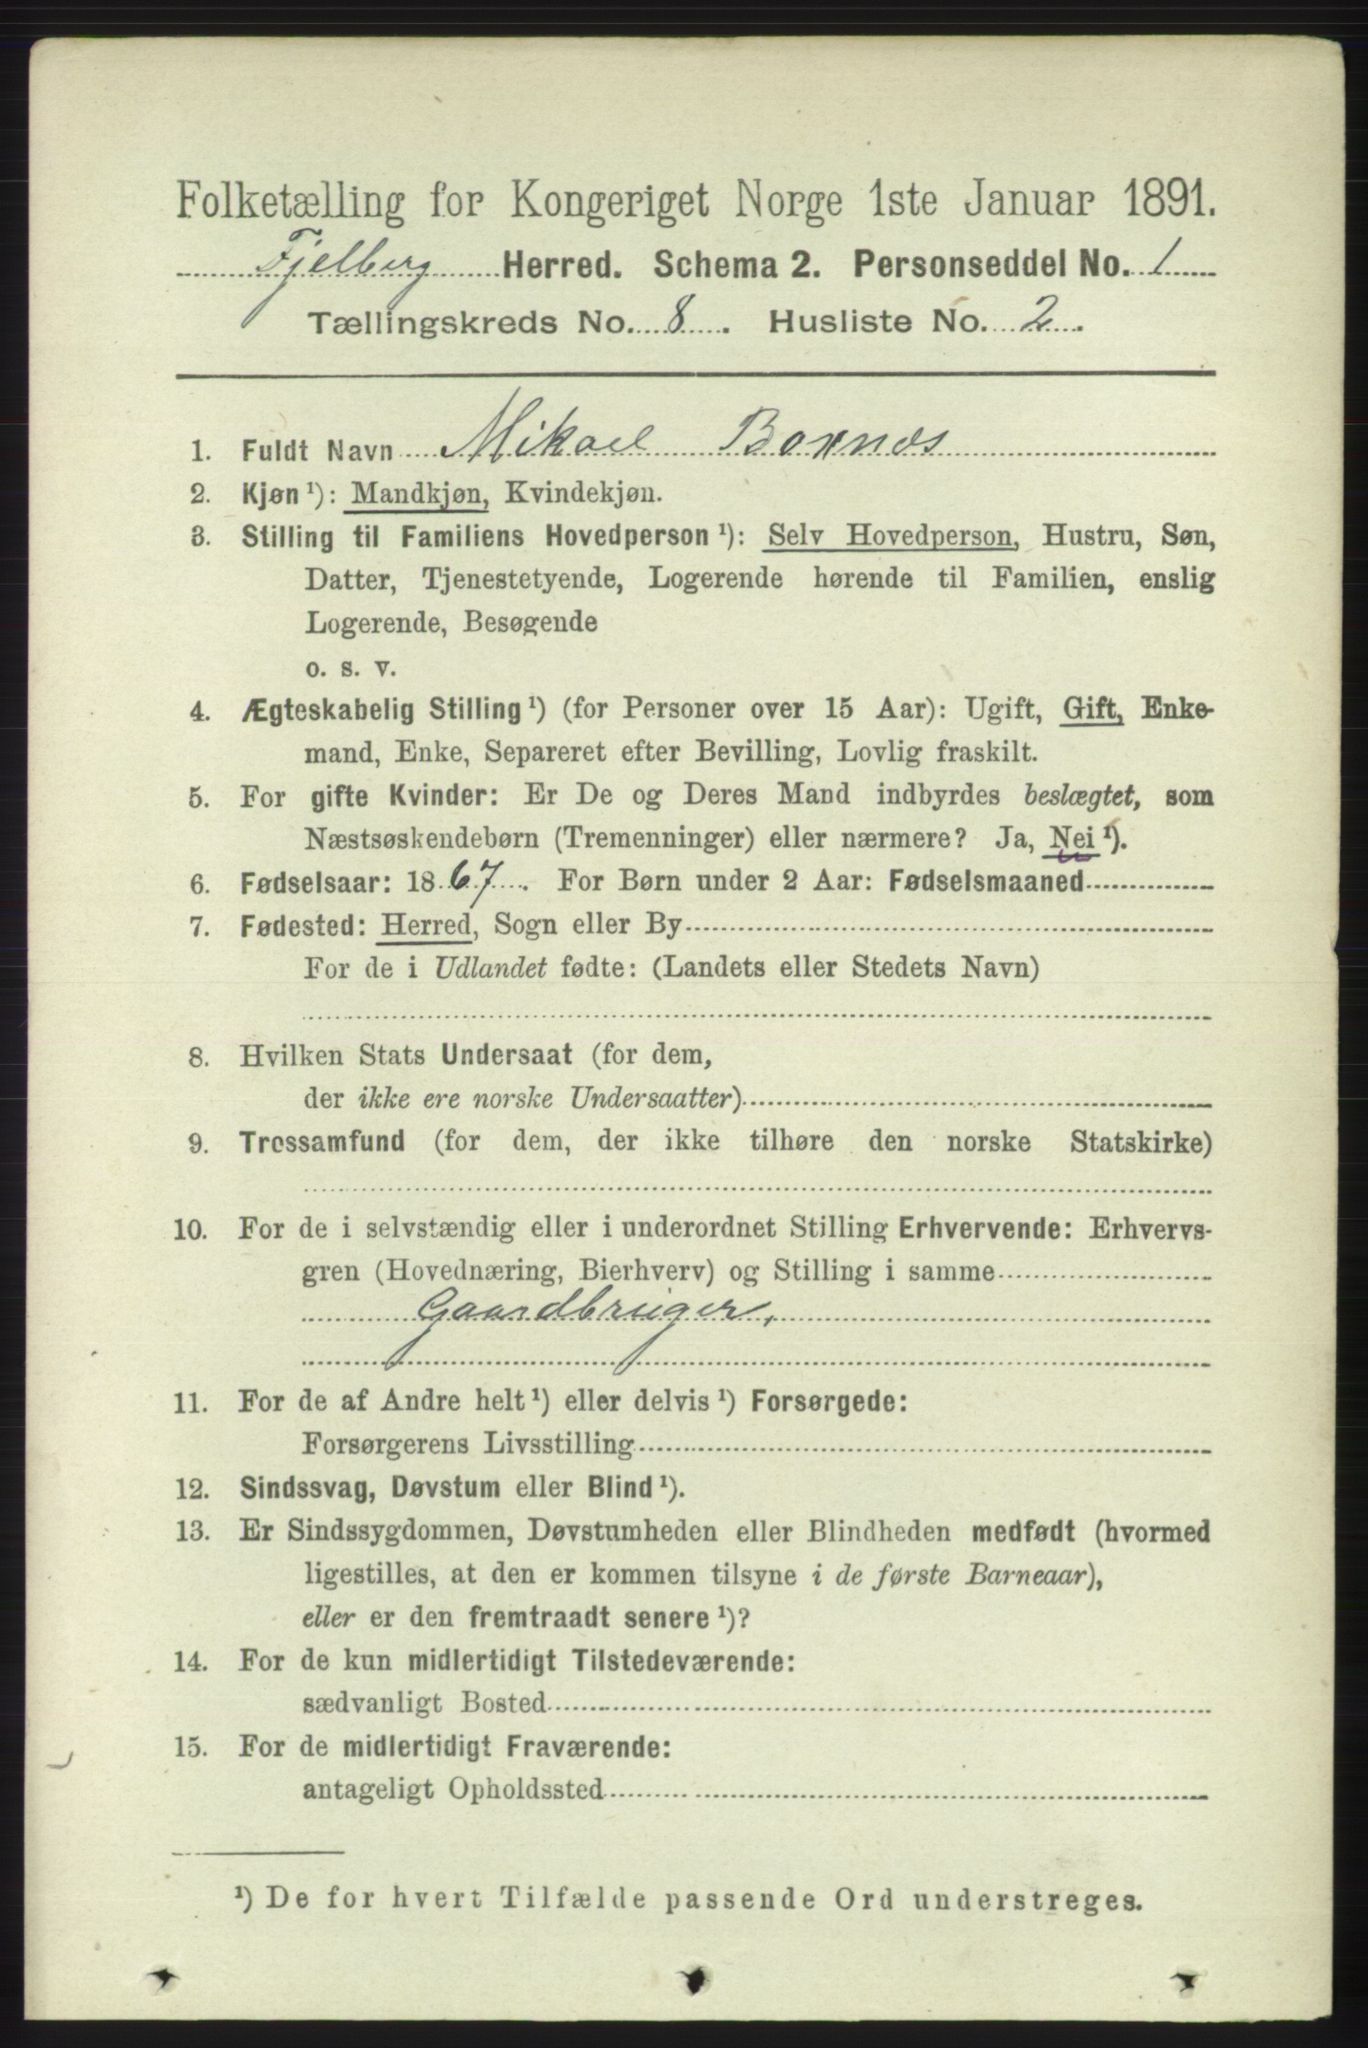 Folketælling for Kongeriget Norge 1ste Januar 1891.
Fjelberg Herred. Schema 2. Personseddel No. 1
Tællingskreds No. 8. Husliste No. 2.
1. Fuldt Navn Mikael Boxnæs
2. Kjøn ¹): Mandkjøn, Kvindekjøn.
3. Stilling til Familiens Hovedperson ¹): Selv Hovedperson, Hustru, Søn,
Datter, Tjenestetyende, Logerende hørende til Familien, enslig
Logerende, Besøgende
o. s. v.
4. Ægteskabelig Stilling ¹) (for Personer over 15 Aar): Ugift, Gift, Enke-
mand, Enke, Separeret efter Bevilling, Lovlig fraskilt.
5. For gifte Kvinder: Er De og Deres Mand indbyrdes beslægtet, som
Næstsøskendebørn (Tremenninger) eller nærmere? Ja, Nei ¹).
6. Fødselsaar: 1867. For Børn under 2 Aar: Fødselsmaaned
7. Fødested: Herred, Sogn eller By
For de i Udlandet fødte: (Landets eller Stedets Navn)
8. Hvilken Stats Undersaat (for dem,
der ikke ere norske Undersaatter)
9. Trossamfund (for dem, der ikke tilhøre den norske Statskirke)
10. For de i selvstændig eller i underordnet Stilling Erhvervende: Erhvervs-
gren (Hovednæring, Bierhverv) og Stilling i samme
Gaardbruger,
11. For de af Andre helt ¹) eller delvis ¹) Forsørgede:
Forsørgerens Livsstilling
12. Sindssvag, Døvstum eller Blind ¹).
13. Er Sindssygdommen, Døvstumheden eller Blindheden medfødt (hvormed
ligestilles, at den er kommen tilsyne i de første Barneaar),
eller er den fremtraadt senere ¹)?
14. For de kun midlertidigt Tilstedeværende:
sædvanligt Bosted
15. For de midlertidigt Fraværende:
antageligt Opholdssted
¹) De for hvert Tilfælde passende Ord understreges.